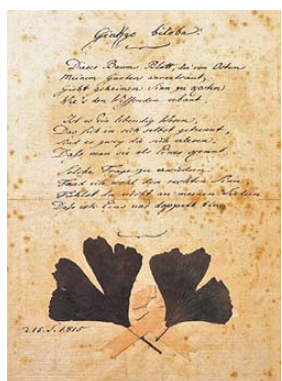 Ginkgo biloba.
Dieses Baums Blatt, der von Osten
Meinem Garten anvertraut,
Giebt geheimen Sinn zu kosten
Wie's den Wissenden erbaut.
Ist es Ein lebendig Wesen,
Das sich in sich selbst getrennt,
Sind es zwey die sich erlesen,
Daß man sie als Eines kennt.
Solche Frage zu erwiedern
Fand ich wohl den rechten Sinn
Fühlst du nicht an meinen Liedern
Daß ich Eins und doppelt bin
d. 15. S. 1815